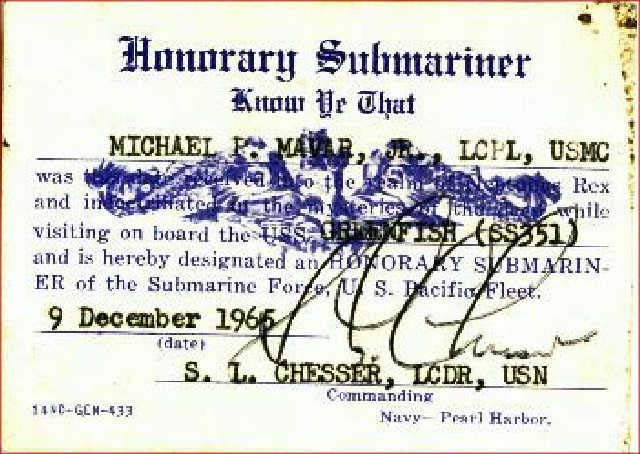 Honorary Submariner
Know Ye That
MICHAEL P. MAVAR, JR., LCPL, USMC
was this day received into the realm of Neptunus Rex
and indoctrinated in the mysteries of the deep while
visiting on board the USS GREENFISH (SS351)
and is hereby designated an HONORARY SUBMARIN-
ER of the Submarine Force, U. S. Pacific Fleet.
9 December 1965
(date)
S. L. CHESSER, LCDR, USN
Commanding
14ND-GEN-433
Navy—Pearl Harbor.